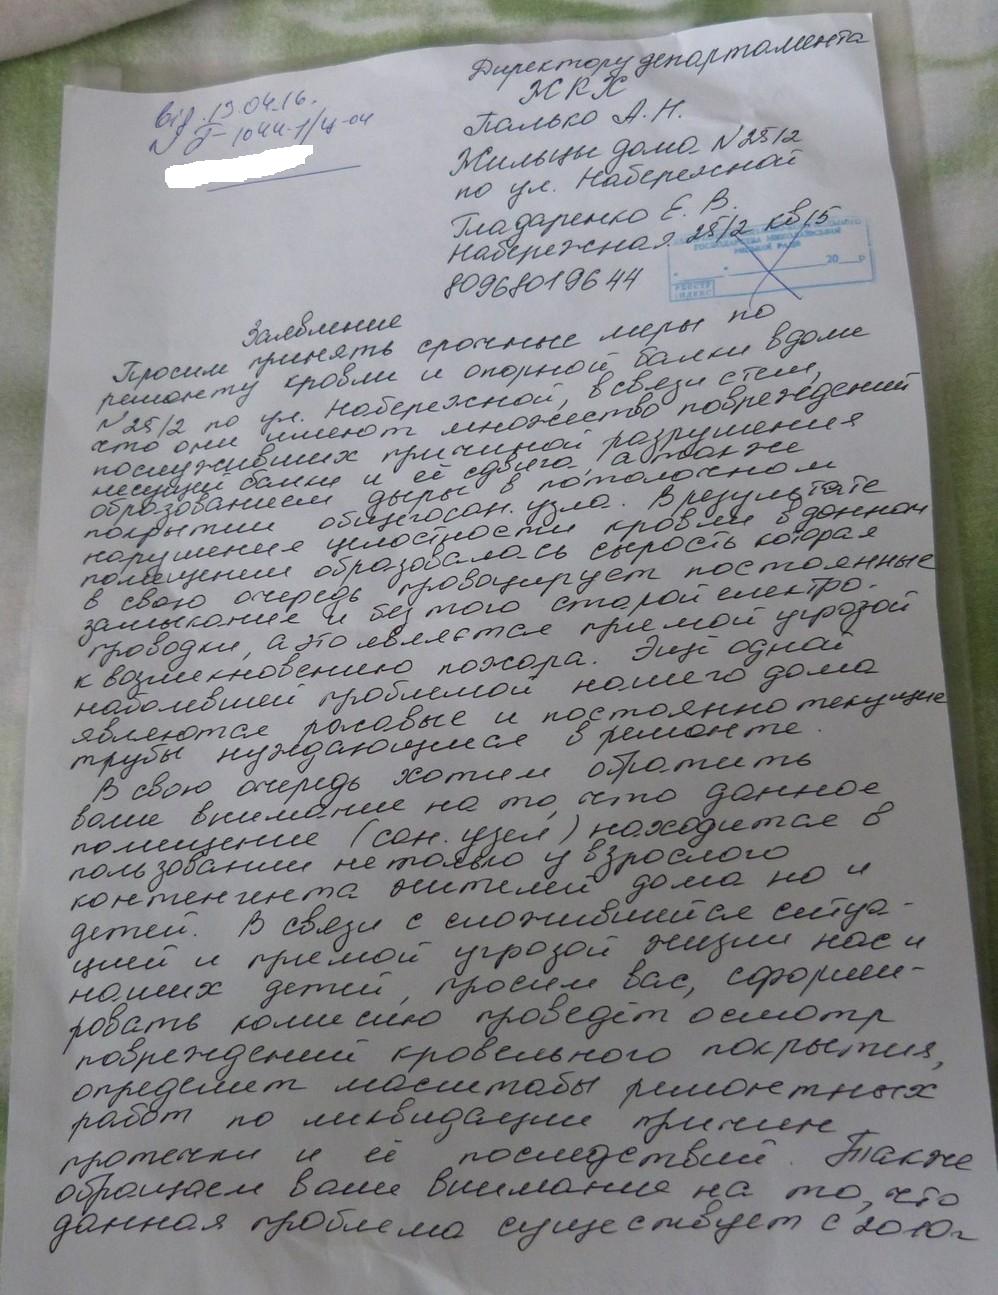 від. 13.04.16.
Директору департамента
ЖКХ
Палько А.Н.
Жильцы дома N25/2
по ул. Набережной
Гладаренко Е. В.
Набережная 25/2 кв 15
80968019644
ГОСПОДАРСТВА МИКОЛАЇВСЬКОЇ
МІСЬКОЇ РАДИ
20 р
РЕЄСТР
ІНДЕКС
Заявление
Просим принять срочные меры по
ремонту кровли и опорной балки в доме
N25/2 по ул. Набережной, в связи с тем,
что они имеют множество повреждений
послуживших причиной разрушения
несущей балки и её сдвига, а также
образованием дыры в потолочном
покрытии общего сан. узла. В результате
нарушения целостности кровли в данном
помещении образовалась сырость которая
в свою очередь провацирует постоянные
замыкание и без того старой електро-
проводки, а это является прямой угрозой
к возникновению пожара. Ещё одной
наболевшей проблемой нашего дома
являются роховые и постоянно текущие
трубы нуждающиеся в ремонте.
В свою очередь хотим обратить
ваше внимание на то, что данное
помещение (сан. узел) находится в
пользовании не только у взрослого
контенгента жителей дома но и
детей. В связи с сложившейся ситуа-
цией и прямой угрозой жизни нас и
наших детей, просим вас, сформи-
ровать комисию проведёт осмотр
повреждений кровельного покрытия,
определит масштабы ремонтных
работ по ликвидации причин
протечки и её последствий. Также
обращаем ваше внимание на то, что
данная проблема существует с 2010г